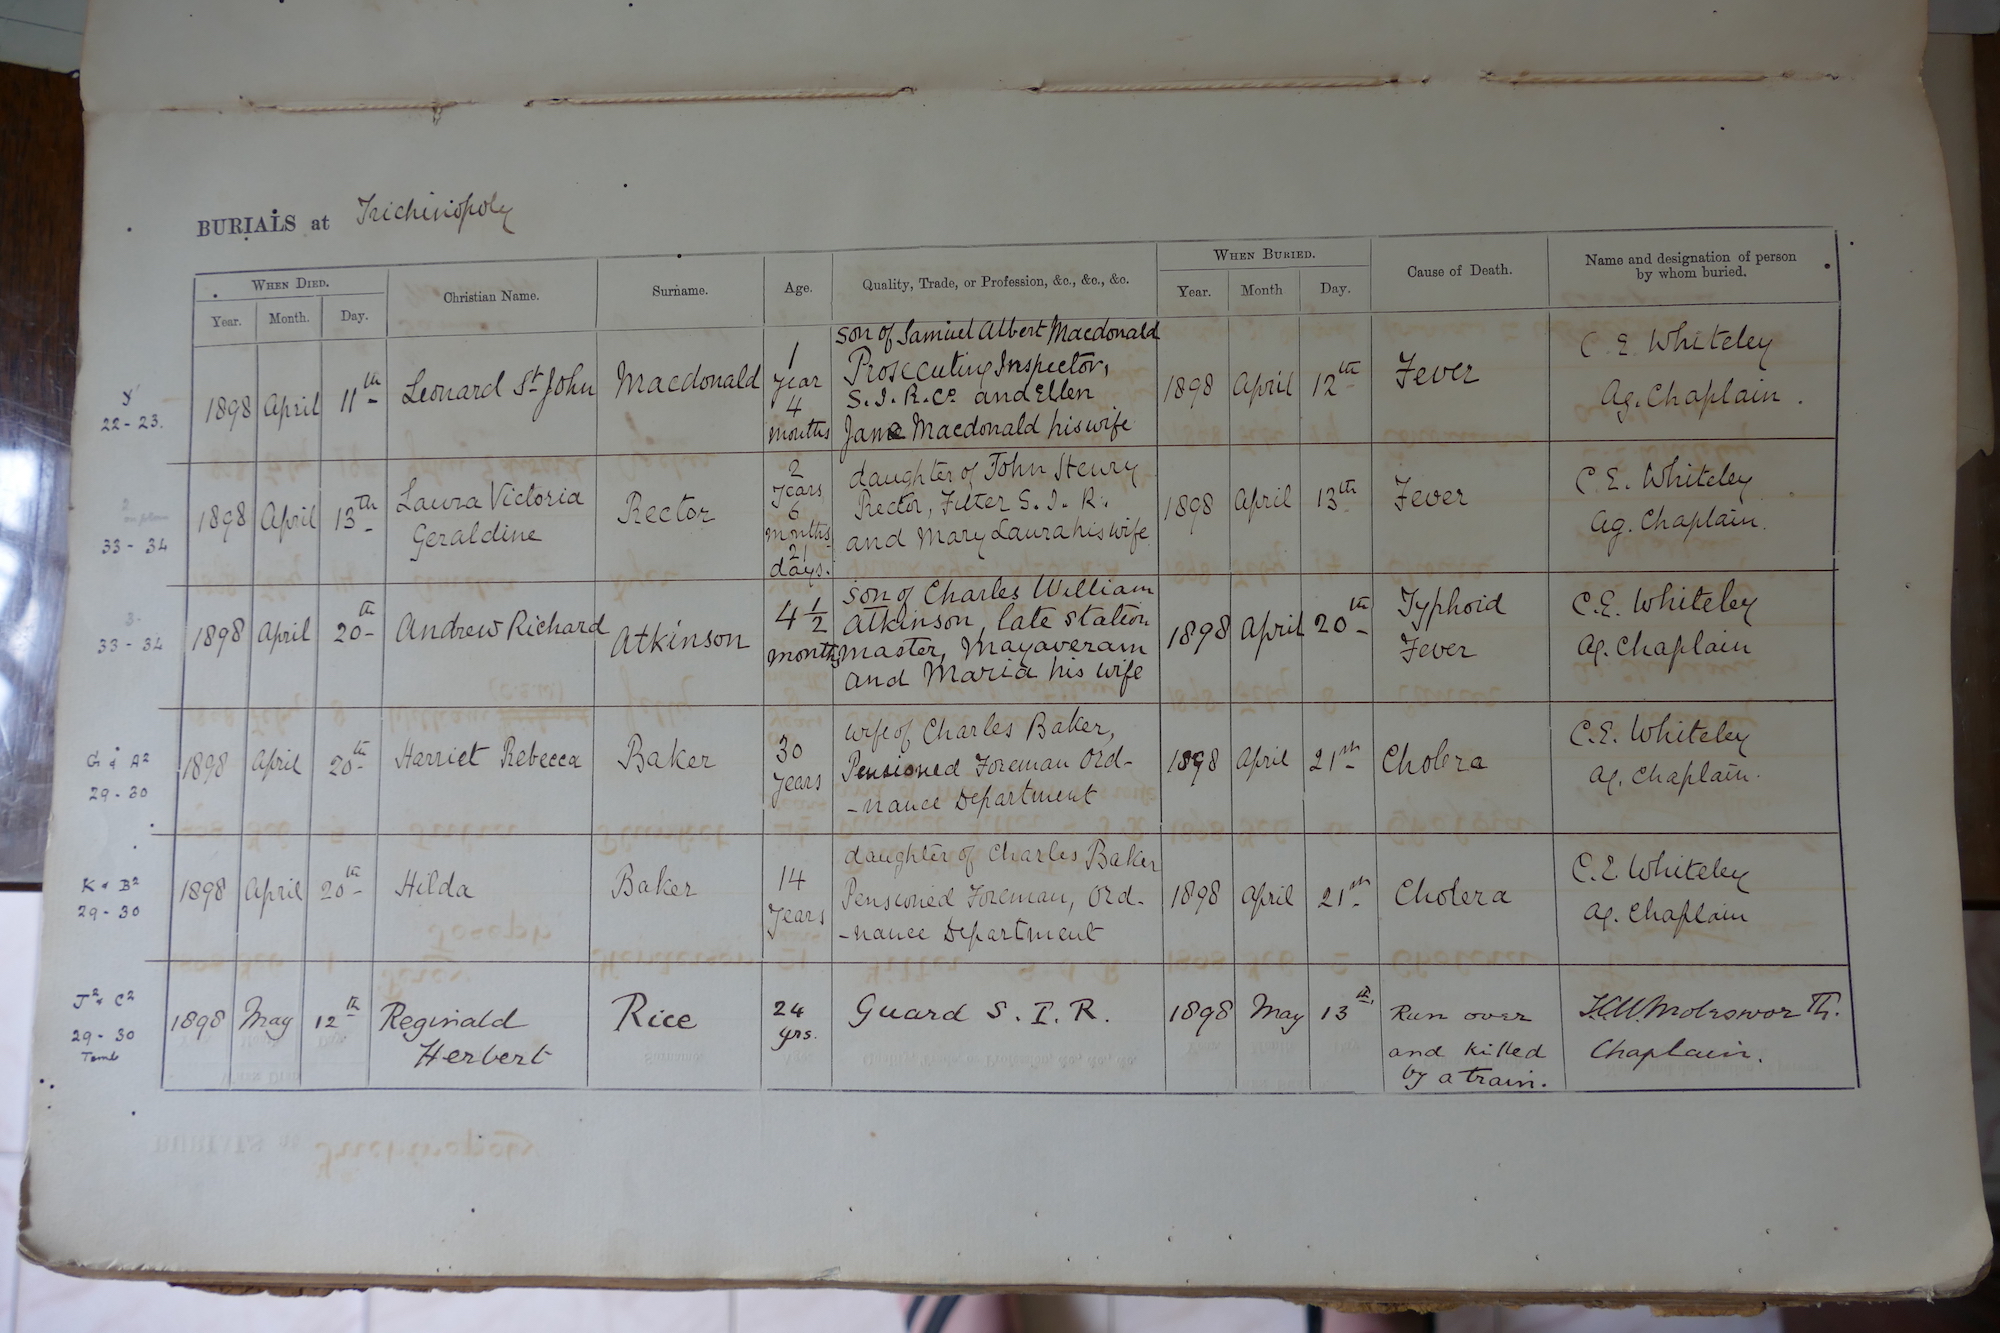 BURIALS at Trichinopoly
WHEN DIED.
Christian Name.
Surname.
Age.
Quality, Trade, or Profession, &c., &c., &c.
WHEN BURIED.
Cause of Death.
Name and designation of person
by whom buried.
Year.
Month.
Day.
Year.
Month
Day.
22-23.
1898
April
11th
Leonard St John
Macdonald
1
year
4
months
son of Samuel Albert Macdonald
Prosecuting Inspector,
S. I. R. Co and Ellen
Jane Macdonald his wife
1898
April
12th
Fever
C E Whiteley
Ag. Chaplain.
33-34
1898
April
13th
Laura Victoria
Geraldine
Rector
2
years
6
months
21
days.
daughter of John Henry
Rector, Fitter S. I. R.
and Mary Laura his wife
1898
April
13th
Fever
C. E. Whiteley
Ag. Chaplain.
3-
33-34
1898
April
20th
Andrew Richard
Atkinson
4 1/2
months
son of Charles William
Atkinson, late station
master, Mayaveram
and Maria his wife
1898
April
20th
Typhoid
Fever
C. E. Whiteley
Ag. Chaplain
G & A2
29-30
1898
April
20th
Harriet Rebecca
Baker
30
years
wife of Charles Baker,
Pensioned Foreman Ord-
-nance Department
1898
April
21st
Cholera
C. E. Whiteley
Ag. Chaplain.
K & B2
29-30
1898
April
20th
Hilda
Baker
14
years
daughter of Charles Baker
Pensioned Foreman, Ord-
-nance Department
1898
April
21st
Cholera
C. E Whiteley
Ag. Chaplain
J2 & C2
29-30
Tomb
1898
May
12th
Reginald
Herbert
Rice
24
yrs.
Guard S. I. R.
1898
May
13th
Run over
and killed
by a train.
Molesworth.
Chaplain.